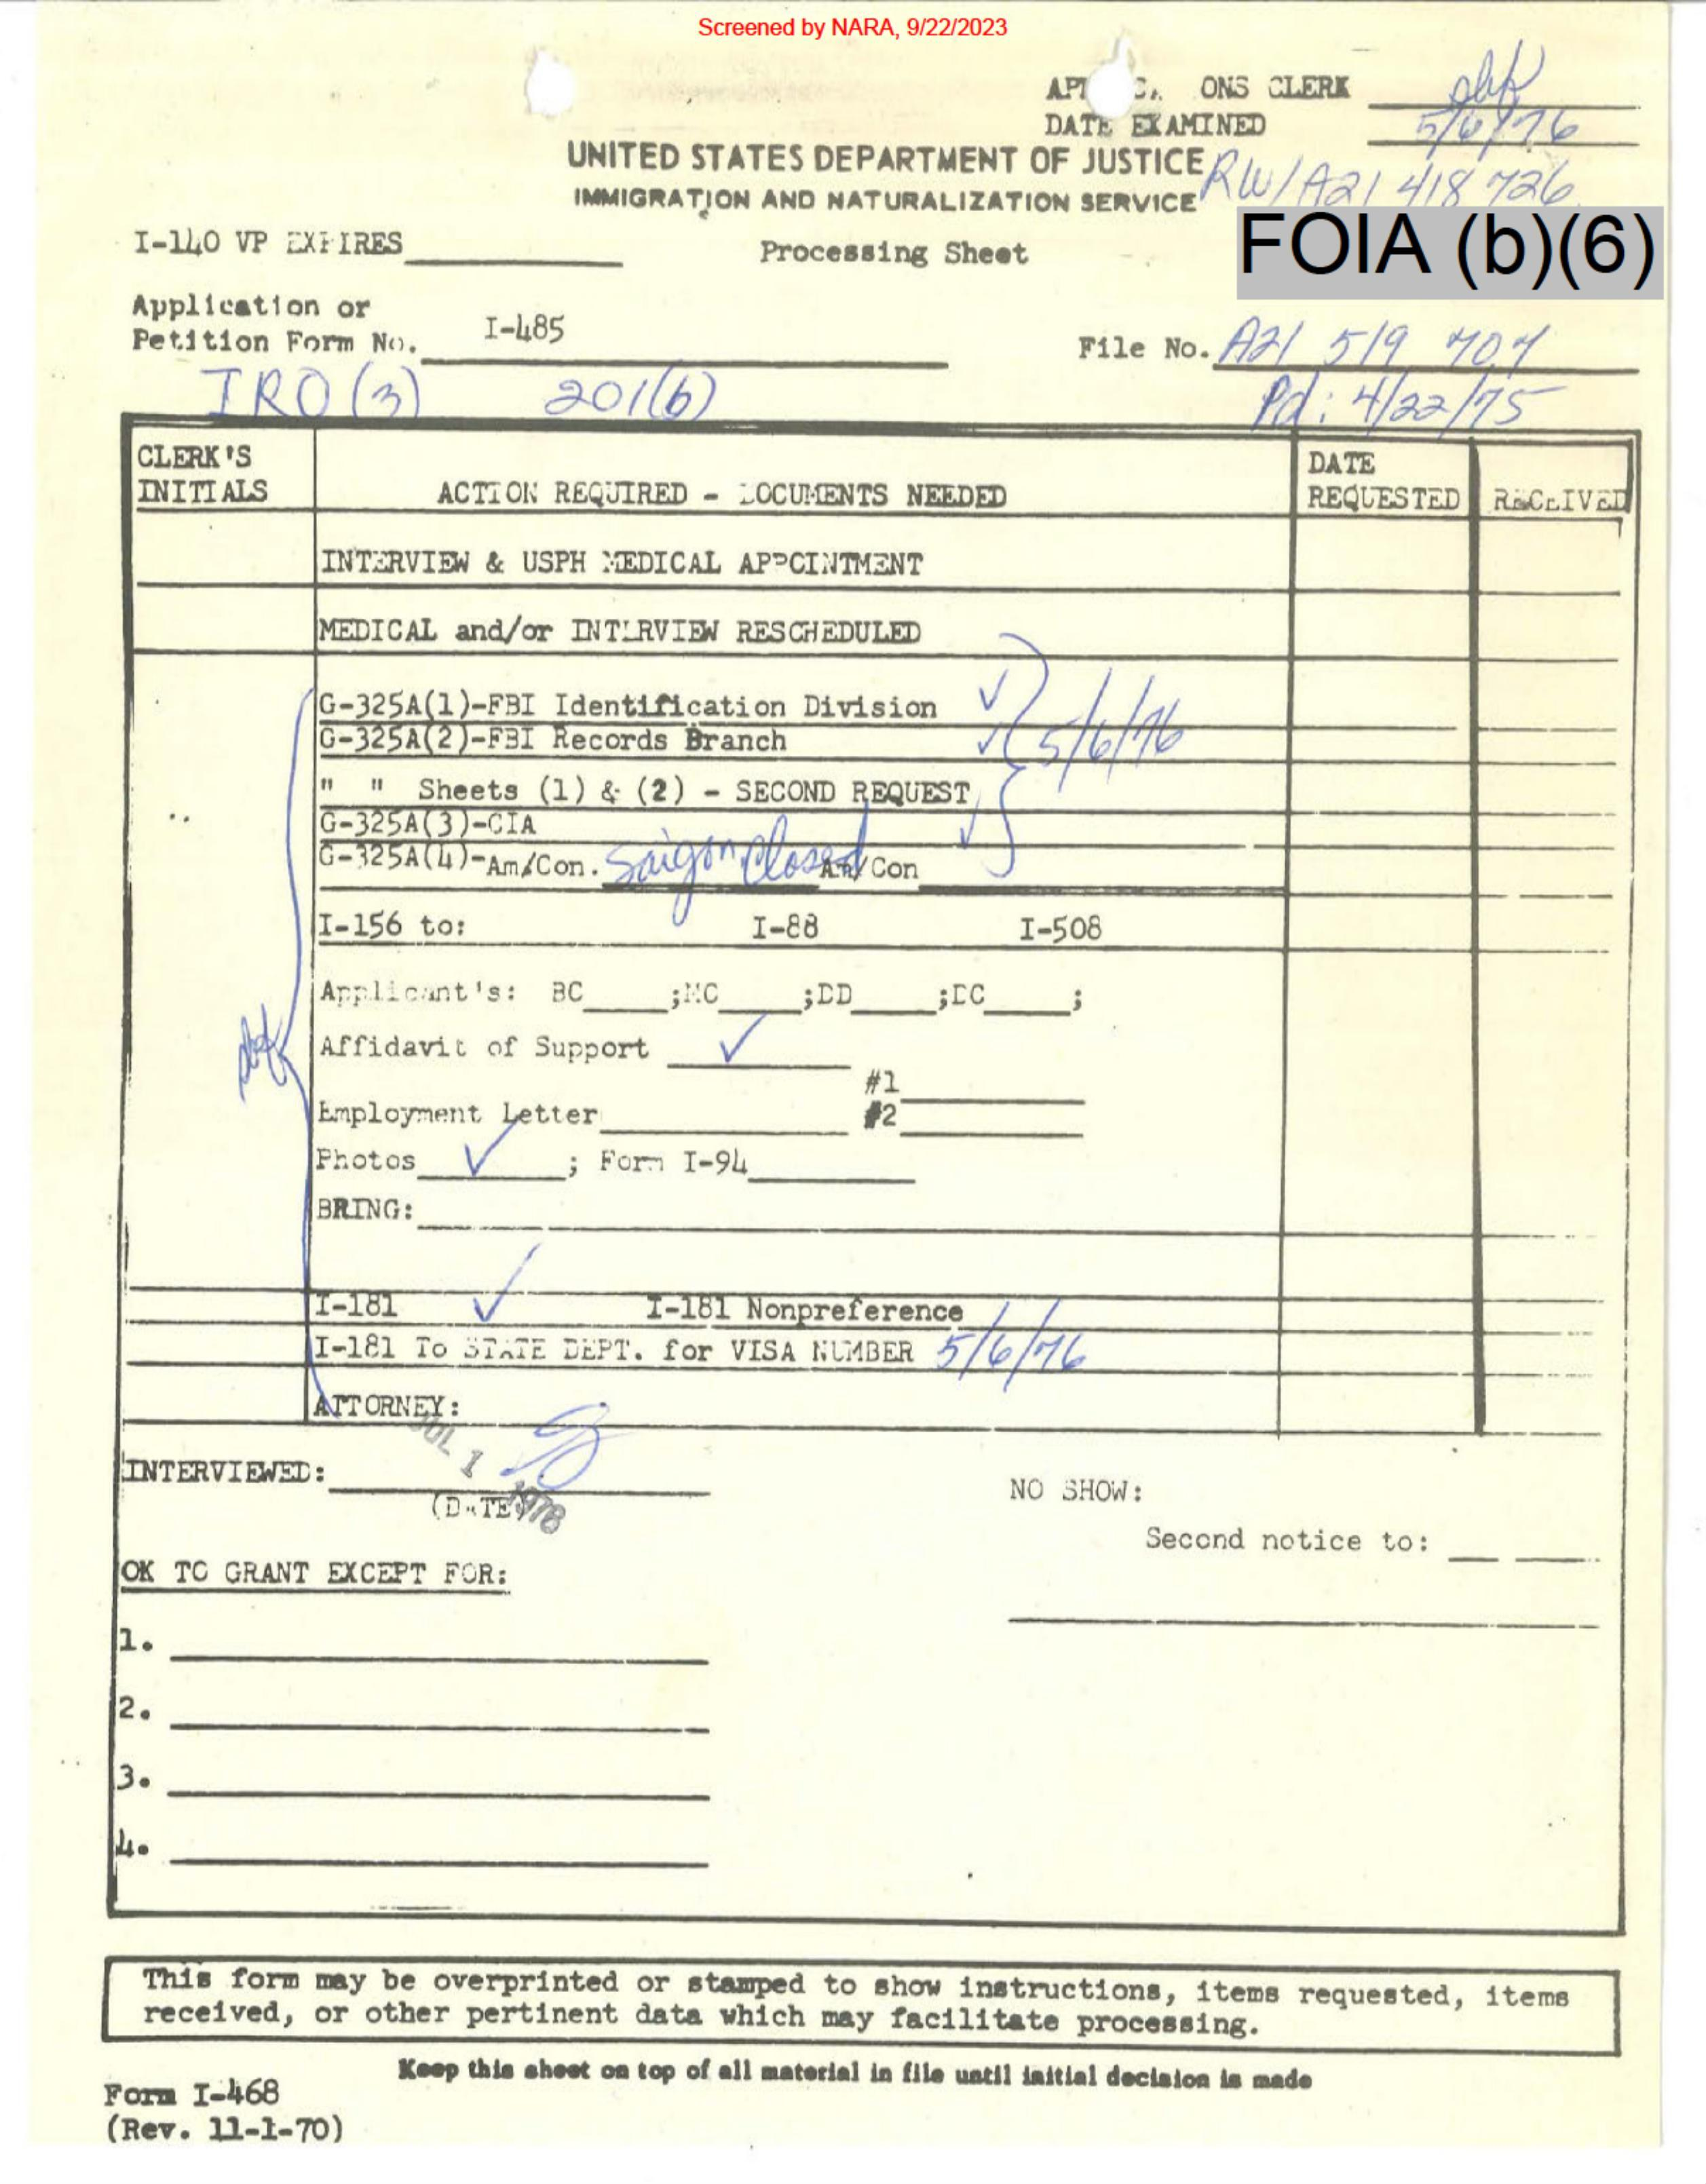 Screened by NARA, 9/22/2023
ONS CLERK
DATE EXAMINED 5/6/76
UNITED STATES DEPARTMENT OF JUSTICE
IMMIGRATION AND NATURALIZATION SERVICE
RW/A21 418 726
FOIA (b)(6)
I-140 VP EXPIRES
Processing Sheet
Application or
Petition Form No. I-485
File No. A21 519 707
IRO (3) 201(b)
Pd: 4/22/75
CLERK'S
INITIALS
ACTION REQUIRED - DOCUMENTS NEEDED
DATE
REQUESTED
RECEIVED
INTERVIEW & USPH MEDICAL APPOINTMENT
MEDICAL and/or INTERVIEW RESCHEDULED
G-325A(1)-FBI Identification Division ✓
G-325A(2)-FBI Records Branch ✓
5/6/76
" " Sheets (1) & (2) - SECOND REQUEST
G-325A(3)-CIA ✓
G-325A(4)-Am/Con. Saigon Closed Am/Con
I-156 to: I-88 I-508
Applicant's: BC ;MC ;DD ;DC ;
Affidavit of Support ✓
#1
Employment Letter #2
Photos ✓ ; Form I-94
BRING:
I-181 ✓ I-181 Nonpreference
I-181 To STATE DEPT. for VISA NUMBER 5/6/76
ATTORNEY:
JUL 1 1976
INTERVIEWED:
(DATE)
NO SHOW:
Second notice to:
OK TO GRANT EXCEPT FOR:
1.
2.
3.
4.
This form may be overprinted or stamped to show instructions, items requested, items
received, or other pertinent data which may facilitate processing.
Keep this sheet on top of all material in file until initial decision is made
Form I-468
(Rev. 11-1-70)